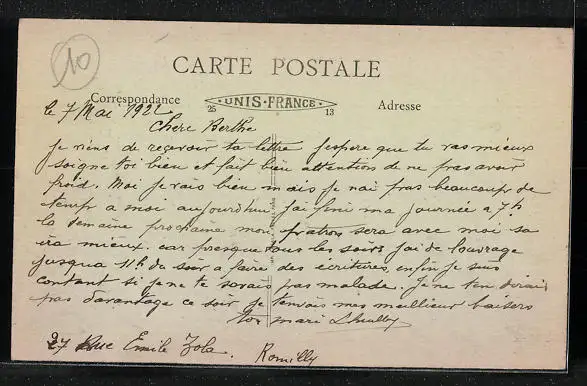 10
CARTE POSTALE
Correspondance
UNIS-FRANCE
25 13
Adresse
le 7 Mai 1922
Chere Berthe
je viens de reçevoir ta lettre jespere que tu vas mieux
soigne toi bien et fait bien attention de ne pas avoir
froid. Moi je vais bien mais je nai pas beaucoup de
temp a moi aujourdhui jai fini ma journée a 7h
la semaine prochaine mon patron sera avec moi sa
ira mieux. car presque tous les soirs jai de louvrage
jusqua 11h du soir a faire des écritures, enfin je suis
contant si je ne te savais pas malade. je ne ten dirai
pas davantage ce soir je tenvois mes meilleur baisers
ton mari
27 Rue Emile Zola. Romilly